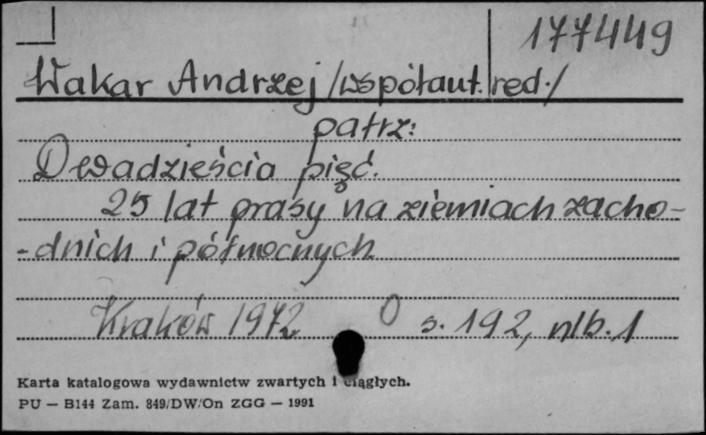 177449
Wakar Andrzej /współaut. red./
patrz:
Dwadzieścia pięć.
25 lat prasy na ziemiach zacho-
-dnich i północnych
Kraków 1972 s. 192, nlb. 1
Karta katalogowa wydawnictw zwartych i ciągłych.
PU — B144 Zam. 849/DW/On ZGG — 1991